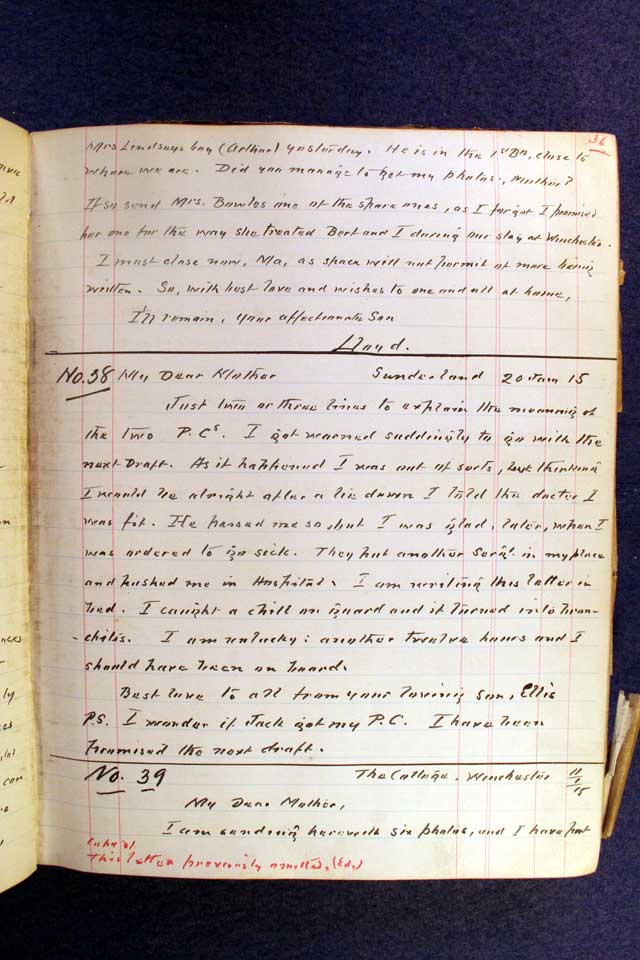 36
Mrs Lindsays boy (Arthur) yesterday. He is in the 1st Bn, close to
where we are. Did you manage to get my photos, Mother?
If so send Mrs. Bowles one of the spare ones, as I forgot I promised
her one for the way she treated Bert and I during our stay at Winchester.
I must close now, Ma, as space will not permit of more being
written. So, with best love and wishes to one and all at home,
I'll remain, your affectionate Son
Lloyd.
No. 38 My Dear Mother Sunderland 20 Jan 15
Just two or three lines to explain the meaning of
the two P.Cs. I got warned suddenly to go with the
next Draft. As it happened I was out of sorts, but thinking
I would be alright after a lie down I told the doctor I
was fit. He passed me so, but I was glad, later, when I
was ordered to go sick. They put another Sergt. in my place
and pushed me in Hospital. I am writing this letter in
bed. I caught a chill on guard and it turned into bron-
-chitis. I am unlucky: another twelve hours and I
should have been on board.
Best love to all from your loving son, Ellis
P.S. I wonder if Jack got my P.C. I have been
promised the next draft.
No. 39 The Cottage, Winchester 11/1/15
My Dear Mother,
I am sending herewith six photos, and I have put
This letter previously omitted, (Edr)